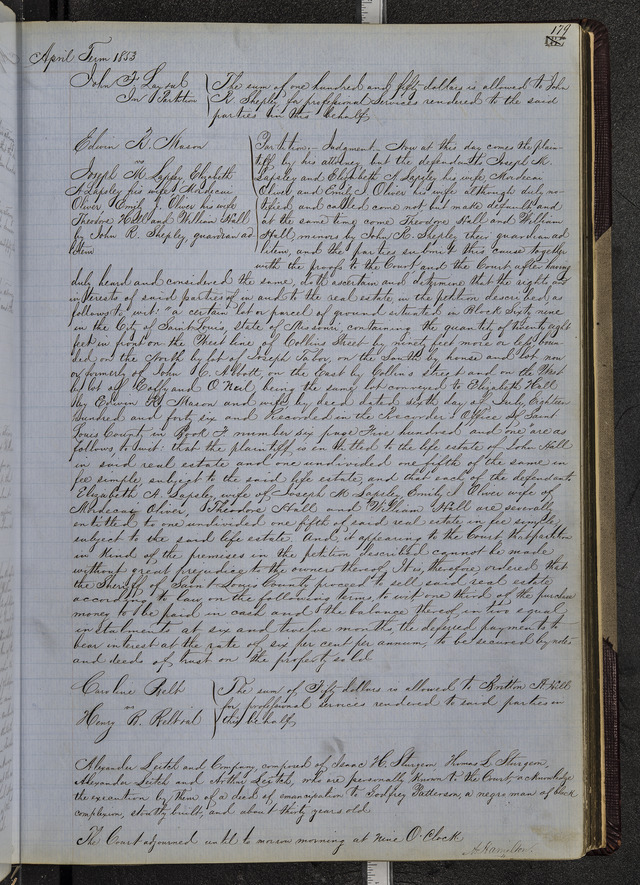 179
April Term 1853
John F. Layoul
In Partition
The sum of one hundred and fifty dollars is allowed to John
R. Shepley for professional services rendered to the said
parties in this behalf
Edwin R. Mason
vs
Joseph M. Lapsley Elizabeth
A. Lapsley his wife Mordecai
Oliver Emily J. Oliver his wife
Theodore Hall and William Hall
by John R. Shepley, guardian ad
litem
Partition. Judgment. Now at this day comes the plain-
tiff by his attorney, but the defendants Joseph M.
Lapsley and Elizabeth A. Lapsley his wife, Mordecai
Oliver and Emily J. Oliver his wife although duly no-
tified, and called come not but make default and
at the same time come Theodore Hall and William
Hall, minors by John R. Shepley their guardian ad
litem, and the parties submit this cause together
with the proofs to the Court and the Court after having
duly heard and considered the same, doth ascertain and determine that the rights and
interests of said parties of in and to the real estate in the petition described, as
follows to wit: "a certain lot or parcel of ground situated in Block Sixty nine
in the City of Saint Louis, State of Missouri, containing the quantity of twenty eight
feet in front on the West line of Collins Street by ninety feet more or less, boun-
ded on the North by lot of Joseph Tabor, on the South by house and lot now
or formerly of John C. Abbott, on the East by Collins street and on the West
by lot of and O'Neil, being the same lot conveyed to Elizabeth Hall
by Edwin R. Mason and wife, by deed dated sixth day of July Eighteen
hundred and forty six and Recorded in the Recorder's Office of Saint
Louis County in Book number six page Five hundred and one" are as
follows to wit: that the plaintiff is entitled to the life estate of John Hall
in said real estate and one undivided one fifth of the same in
fee simple subject to the said life estate, and that each of the defendants
Elizabeth A. Lapsley, wife of Joseph M. Lapsley, Emily J. Oliver wife of
Mordecai Oliver, Theodore Hall and William Hall are severally
entitled to one undivided one fifth of said real estate in fee simple,
subject to the said life estate. And it appearing to the Court that partition
in kind of the premises in the petition described cannot be made
without great prejudice to the owners thereof, It is, therefore ordered that
the Sheriff of Saint Louis County, proceed to sell said real estate
according to law on the following terms, to wit one third of the purchase
money to be paid in cash and the balance thereof in two equal
instalments at six and twelve months, the deferred payments to
bear interest at the rate of six per cent per annum, to be secured by notes
and deeds of trust on the property sold
Caroline Relb
vs
Henry R.
The sum of Fifty dollars is allowed to Britton A. Hill
for professional services rendered to said parties in
this behalf
Alexander Leitch and Company, composed of Isaac H. Sturgeon Thomas L. Sturgeon,
Alexander Leitch and Arthur Leitch, who are personally known to the Court acknowledge
the execution by them of a deed of emancipation to Godfrey Patterson, a negro man of black
complexion, stoutly built, and about thirty years old
The Court adjourned until to morrow morning at nine O'Clock
A. Hamilton